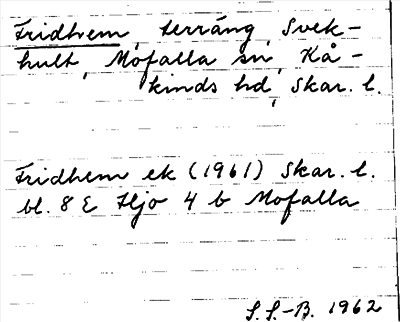 Fridhem, terräng, Svek-
hult, Mofalla sn, Kå-
kinds hd, Skar. l.
Fridhem ek (1961) Skar. l.
bl. 8 E Hjo 4 b Mofalla
S. S.-B. 1962